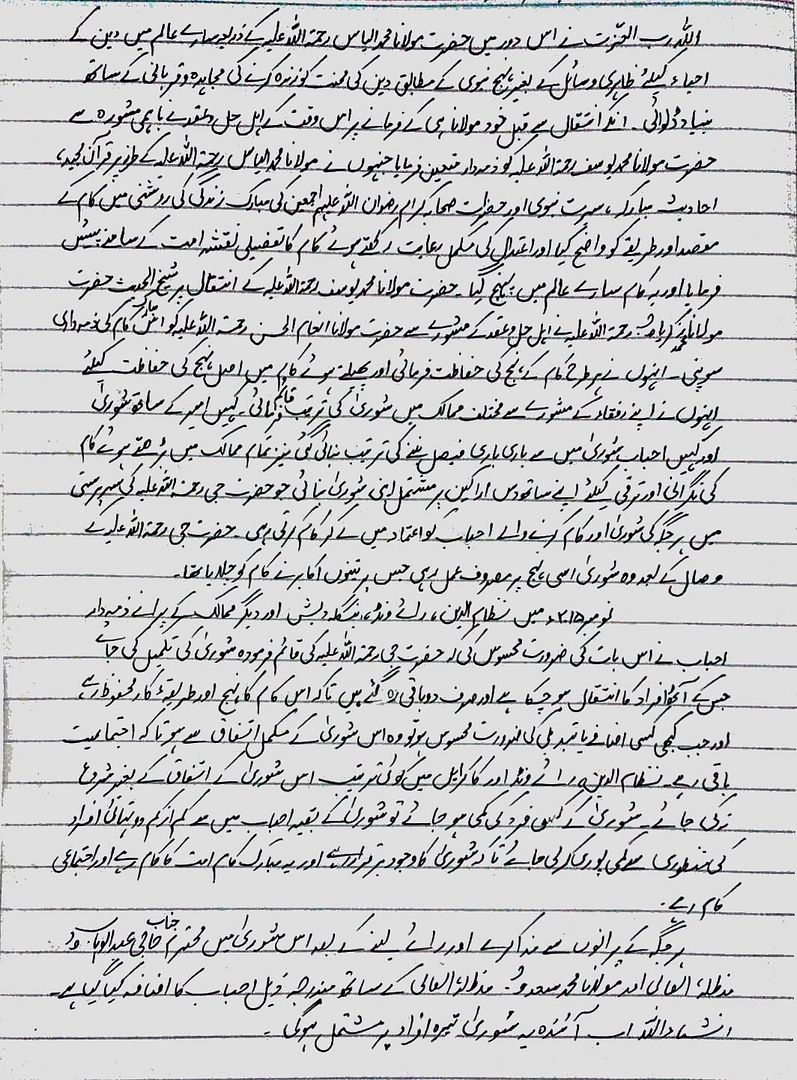 اللہ رب العزت نے اس دور میں حضرت مولانا محمد الیاس رحمۃ اللہ علیہ کے ذریعہ سارے عالم میں دین کے
احیاء کیلئے ظاہری وسائل کے بغیر نہج نبوی کے مطابق دین کی محنت کو زندہ کرنے کی مجاہدہ و قربانی کے ساتھ
بنیاد ڈلوائی ۔ انکے انتقال سے قبل خود مولانا ہی کے فرمانے پر اس وقت کے اہل حل و عقد نے باہمی مشورہ سے
حضرت مولانا محمد یوسف رحمۃ اللہ علیہ کو ذمہ دار متعین فرمایا جنہوں نے مولانا محمد الیاس رحمۃ اللہ علیہ کے طرز پر قرآن مجید،
احادیث مبارکہ، سیرت نبوی اور حضرات صحابہ کرام رضوان اللہ علیہم اجمعین کی مبارک زندگی کی روشنی میں کام کے
مقصد اور طریقے کو واضح کیا اور اعتدال کی مکمل رعایت رکھتے ہوئے کام کا تفصیلی نقشہ امت کے سامنے پیش
فرمایا اور یہ کام سارے عالم میں پہنچ گیا ۔ حضرت مولانا محمد یوسف رحمۃ اللہ علیہ کے انتقال پر شیخ الحدیث حضرت
مولانا محمد زکریا صاحب رحمۃ اللہ علیہ نے اہل حل و عقد کے مشورے سے حضرت مولانا انعام الحسن رحمۃ اللہ علیہ کو اس مبارک کام کی ذمہ داری
سونپی ۔ انہوں نے ہر طرح کام کے نہج کی حفاظت فرمائی اور پھیلتے ہوئے کام میں اصل نہج کی حفاظت کیلئے
انہوں نے اپنے رفقاء کے مشورے سے مختلف ممالک میں شوریٰ کی ترتیب قائم فرمائی ۔ کہیں امیر کے ساتھ شوریٰ
اور کہیں احباب شوریٰ میں سے باری باری فیصل بننے کی ترتیب بنائی گئی نیز تمام ممالک میں بڑھتے ہوئے کام
کی نگرانی اور ترقی کیلئے اپنے ساتھ دس اراکین پر مشتمل ایسی شوریٰ بنائی جو حضرت جی رحمۃ اللہ علیہ کی سرپرستی
میں ہر جگہ کی شوریٰ اور کام کرنے والے احباب کو اعتماد میں لے کر کام کرتی رہی ۔ حضرت جی رحمۃ اللہ علیہ کے
وصال کے بعد وہ شوریٰ اسی نہج پر مصروف عمل رہی جس پر تینوں اکابر نے کام کو چلایا تھا۔
نومبر ۲۰۱۵ء میں نظام الدین، رائے ونڈ، بنگلہ دیش اور دیگر ممالک کے پرانے ذمہ دار
احباب نے اس بات کی ضرورت محسوس کی کہ حضرت جی رحمۃ اللہ علیہ کی قائم فرمودہ شوریٰ کی تکمیل کی جائے
جس کے آٹھ افراد کا انتقال ہو چکا ہے اور صرف دو باقی رہ گئے ہیں تاکہ اس کام کا نہج اور طریقۂ کار محفوظ رہے
اور جب کبھی کسی اضافے یا تبدیلی کی ضرورت محسوس ہو تو وہ اس شوریٰ کے مکمل اتفاق سے ہو تاکہ اجتماعیت
باقی رہے۔ نظام الدین، رائے ونڈ اور کاکرائیل میں کوئی ترتیب اس شوریٰ کے اتفاق کے بغیر شروع
نہ کی جائے ۔ شوریٰ کے کسی فرد کی کمی ہو جائے تو شوریٰ کے بقیہ احباب میں سے کم از کم دو تہائی افراد
کی منظوری سے کمی پوری کر لی جائے تاکہ شوریٰ کا وجود برقرار رہے اور یہ مبارک کام امت کا کام رہے اور اجتماعی
کام رہے ۔
ہر جگہ کے پرانوں سے مذاکرے اور رائے لینے کے بعد اس شوریٰ میں محترم جناب حاجی عبدالوہاب
مدظلہ العالی اور مولانا محمد سعد مدظلہ العالی کے ساتھ مندرجہ ذیل احباب کا اضافہ کیا گیا ہے ۔
انشاء اللہ اب آئندہ یہ شوریٰ تیرہ افراد پر مشتمل ہوگی ۔